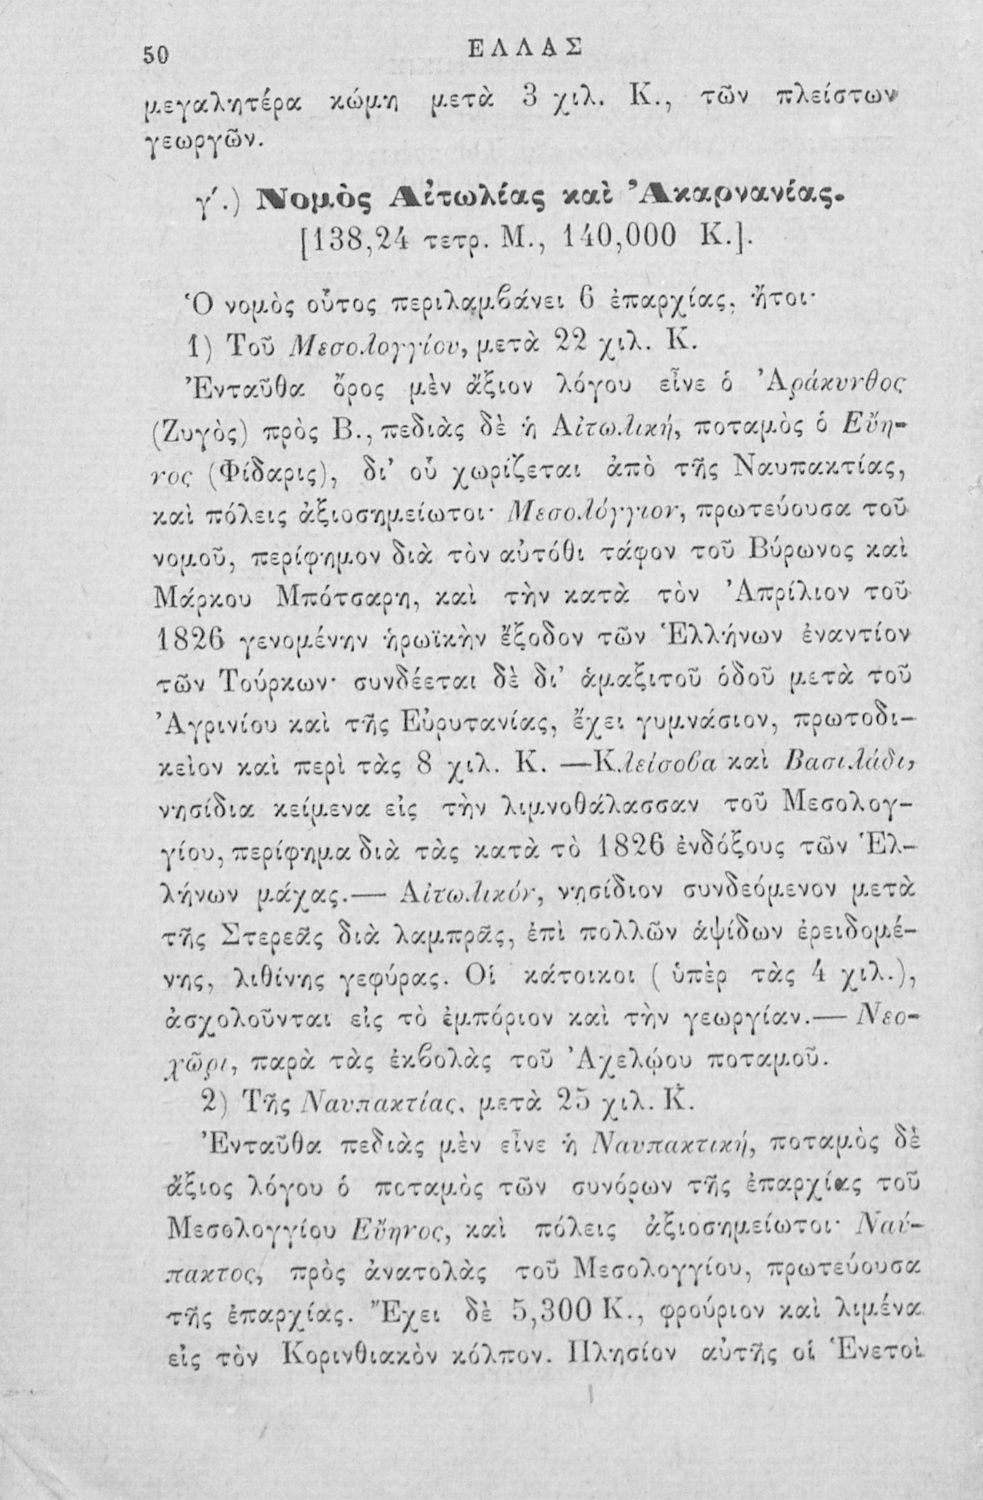 50
ΕΛΛΑΣ
μεγαλητέρα κώμη μετὰ 3 χιλ. Κ., τῶν πλείστων
γεωργῶν.
γ΄.) Νομὸς Αἰτωλίας καὶ Ἀκαρνανίας.
[138,24 τετρ. Μ., 140,000 Κ.].
Ὁ νομὸς οὗτος περιλαμβάνει 6 ἐπαρχίας, ἤτοι·
1) Τοῦ Μεσολογγίου, μετὰ 22 χιλ. Κ.
Ἐνταῦθα ὄρος μὲν ἄξιον λόγου εἶνε ὁ Ἀράκυνθος
(Ζυγὸς) πρὸς Β., πεδιὰς δὲ ἡ Αἰτωλική, ποταμὸς ὁ Εὔη-
νος (Φίδαρις), δι' οὗ χωρίζεται ἀπὸ τῆς Ναυπακτίας,
καὶ πόλεις ἀξιοσημείωτοι· Μεσολόγγιον, πρωτεύουσα τοῦ
νομοῦ, περίφημον διὰ τὸν αὐτόθι τάφον τοῦ Βύρωνος καὶ
Μάρκου Μπότσαρη, καὶ τὴν κατὰ τὸν Ἀπρίλιον τοῦ
1826 γενομένην ἡρωϊκὴν ἔξοδον τῶν Ἑλλήνων ἐναντίον
τῶν Τούρκων· συνδέεται δὲ δι' ἁμαξιτοῦ ὁδοῦ μετὰ τοῦ
Ἀγρινίου καὶ τῆς Εὐρυτανίας, ἔχει γυμνάσιον, πρωτοδι-
κεῖον καὶ περὶ τὰς 8 χιλ. Κ. —Κλείσοβα καὶ Βασιλάδι,
νησίδια κείμενα εἰς τὴν λιμνοθάλασσαν τοῦ Μεσολογ-
γίου, περίφημα διὰ τὰς κατὰ τὸ 1826 ἐνδόξους τῶν Ἑλ-
λήνων μάχας.— Αἰτωλικόν, νησίδιον συνδεόμενον μετὰ
τῆς Στερεᾶς διὰ λαμπρᾶς, ἐπὶ πολλῶν ἁψίδων ἐρειδομέ-
νης, λιθίνης γεφύρας. Οἱ κάτοικοι (ὑπὲρ τὰς 4 χιλ.),
ἀσχολοῦνται εἰς τὸ ἐμπόριον καὶ τὴν γεωργίαν.— Νεο-
χῶρι, παρὰ τὰς ἐκβολὰς τοῦ Ἀχελῴου ποταμοῦ.
2) Τῆς Ναυπακτίας, μετὰ 25 χιλ. Κ.
Ἐνταῦθα πεδιὰς μὲν εἶνε ἡ Ναυπακτική, ποταμὸς δὲ
ἄξιος λόγου ὁ ποταμὸς τῶν συνόρων τῆς ἐπαρχίας τοῦ
Μεσολογγίου Εὔηνος, καὶ πόλεις ἀξιοσημείωτοι· Ναύ-
πακτος, πρὸς ἀνατολὰς τοῦ Μεσολογγίου, πρωτεύουσα
τῆς ἐπαρχίας. Ἔχει δὲ 5,300 Κ., φρούριον καὶ λιμένα
εἰς τὸν Κορινθιακὸν κόλπον. Πλησίον αὐτῆς οἱ Ἑνετοὶ